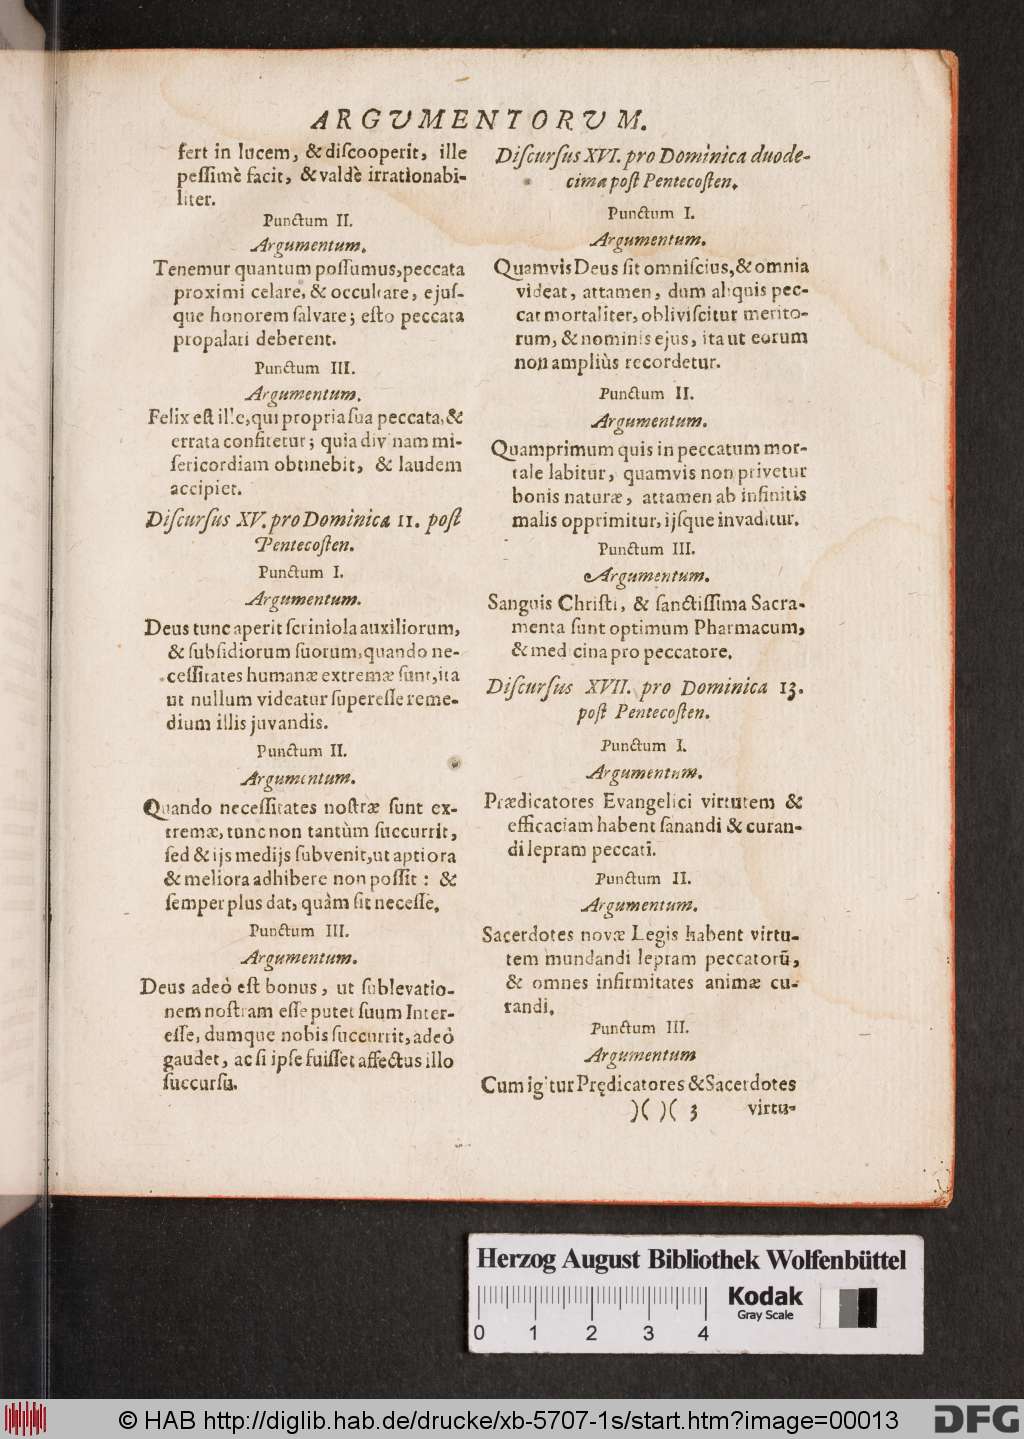 ARGVMENTORVM.
fert in lucem, & diſcooperit, ille
peſſimè facit, & valdè irrationabi-
liter.
Punctum II.
Argumentum.
Tenemur quantum poſſumus, peccata
proximi celare, & occultare, ejuſ-
que honorem ſalvare; eſto peccata
propalari deberent.
Punctum III.
Argumentum.
Felix eſt ille, qui propria ſua peccata, &
errata confitetur; quia divinam mi-
ſericordiam obtinebit, & laudem
accipiet.
Diſcurſus XV. pro Dominica 11. poſt
Pentecoſten.
Punctum I.
Argumentum.
Deus tunc aperit ſcriniola auxiliorum,
& ſubſidiorum ſuorum, quando ne-
ceſſitates humanæ extremæ ſunt, ita
ut nullum videatur ſupereſſe reme-
dium illis juvandis.
Punctum II.
Argumentum.
Quando neceſſitates noſtræ ſunt ex-
tremæ, tunc non tantùm ſuccurrit,
ſed & ijs medijs ſubvenit, ut aptiora
& meliora adhibere non poſſit: &
ſemper plus dat, quàm ſit neceſſe.
Punctum III.
Argumentum.
Deus adeò eſt bonus, ut ſublevatio-
nem noſtram eſſe putet ſuum Inter-
eſſe, dumque nobis ſuccurrit, adeò
gaudet, ac ſi ipſe fuiſſet affectus illo
ſuccurſu.
Diſcurſus XVI. pro Dominica duode-
cima poſt Pentecoſten.
Punctum I.
Argumentum.
Quamvis Deus ſit omniſcius, & omnia
videat, attamen, dum aliquis pec-
cat mortaliter, obliviſcitur merito-
rum, & nominis ejus, ita ut eorum
non ampliùs recordetur.
Punctum II.
Argumentum.
Quamprimum quis in peccatum mor-
tale labitur, quamvis non privetur
bonis naturæ, attamen ab infinitis
malis opprimitur, ijſque invaditur.
Punctum III.
Argumentum.
Sanguis Chriſti, & ſanctiſſima Sacra-
menta ſunt optimum Pharmacum,
& medicina pro peccatore.
Diſcurſus XVII. pro Dominica 13.
poſt Pentecoſten.
Punctum I.
Argumentum.
Prædicatores Evangelici virtutem &
efficaciam habent ſanandi & curan-
di lepram peccati.
Punctum II.
Argumentum.
Sacerdotes novæ Legis habent virtu-
tem mundandi lepram peccatorũ,
& omnes infirmitates animæ cu-
randi.
Punctum III.
Argumentum
Cum igitur Prędicatores & Sacerdotes
)( )( 3 virtu-
Herzog August Bibliothek Wolfenbüttel
Kodak
Gray Scale
0 1 2 3 4
© HAB http://diglib.hab.de/drucke/xb-5707-1s/start.htm?image=00013
DFG